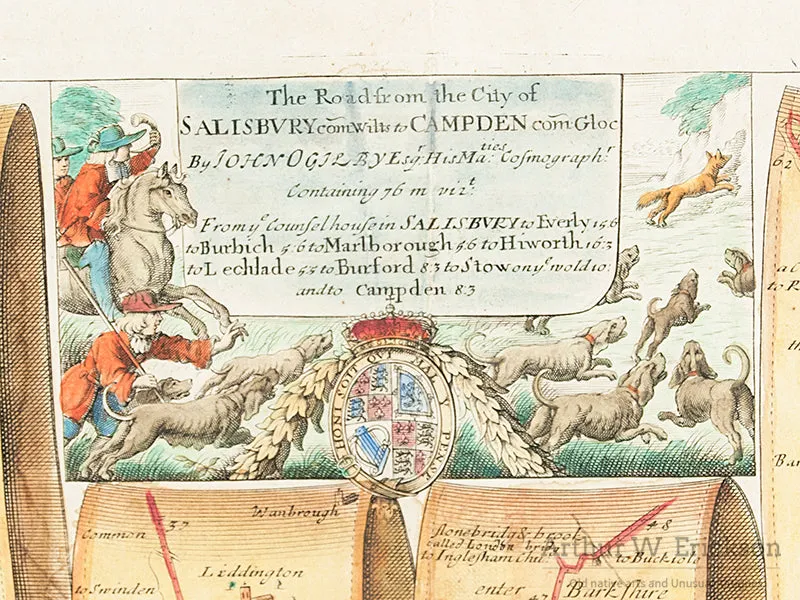 The Road from the City of
SALISBVRY com̄ Wilts to CAMPDEN com̄ Gloc
By IOHN OGILBY Esqr. His Maties. Cosmographr.
Containing 76 m vizt.
From ye Counsel house in SALISBURY to Everly 15,6
to Burbich 5,6 to Marlborough 5,6 to Hiworth 16,3
to Lechlade 5,5 to Burford 8,3 to Stow on ye wold 10,
and to Campden 8,3
HONI SOIT QVI MAL Y PENSE
62
to R
th
Bar
Common
37
Wanbrough
to Swinden
Liddington
Stonebridg & brook
called London brig
to Inglesham Chu.
48
to Buckiole
enter Barkshire
47
Arthur W. Erickson
Old native arts and Unusual